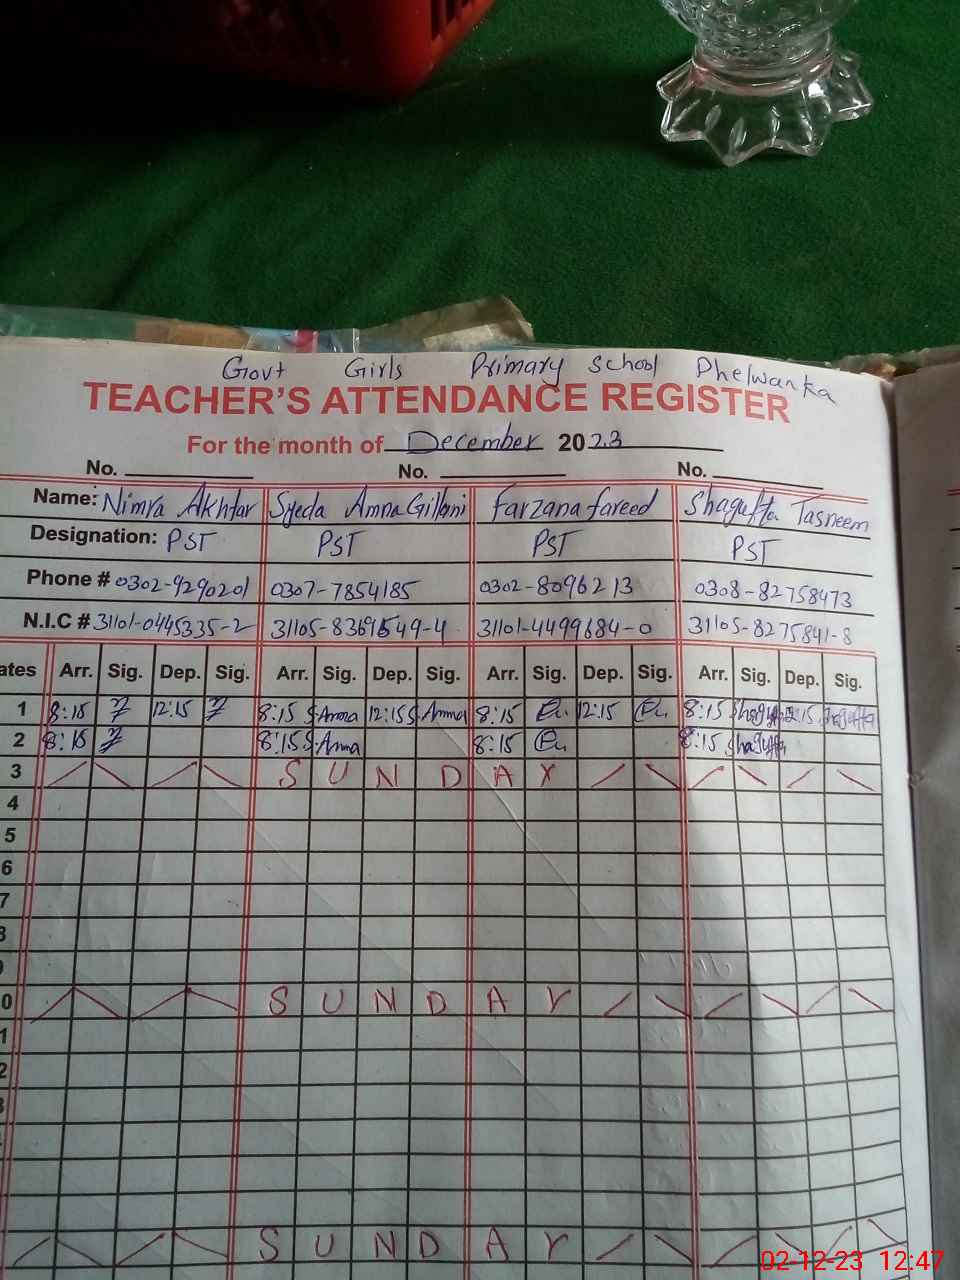 Govt Girls Primary School Phelwanka
TEACHER'S ATTENDANCE REGISTER
For the month of December 2023
No. No. No.
Name: Nimra Akhtar Syeda Amna Gillani Farzana fareed Shagufta Tasneem
Designation: PST PST PST PST
Phone # 0302-9290201 0307-7854185 0302-8096213 0308-82758473
N.I.C # 31101-0445335-2 31105-8369549-4 31101-4499684-0 31105-8275841-8
ates Arr. Sig. Dep. Sig. Arr. Sig. Dep. Sig. Arr. Sig. Dep. Sig. Arr. Sig. Dep. Sig.
1 8:15 12:15 8:15 S.Amna 12:15 S.Amna 8:15 12:15 8:15 Shagufta 12:15 Shagufta
2 8:15 8:15 S.Amna 8:15 8:15 Shagufta
3 SUNDAY
4
5
6
7
8
9
0 SUNDAY
1
2
3
SUNDAY
02-12-23 12:47